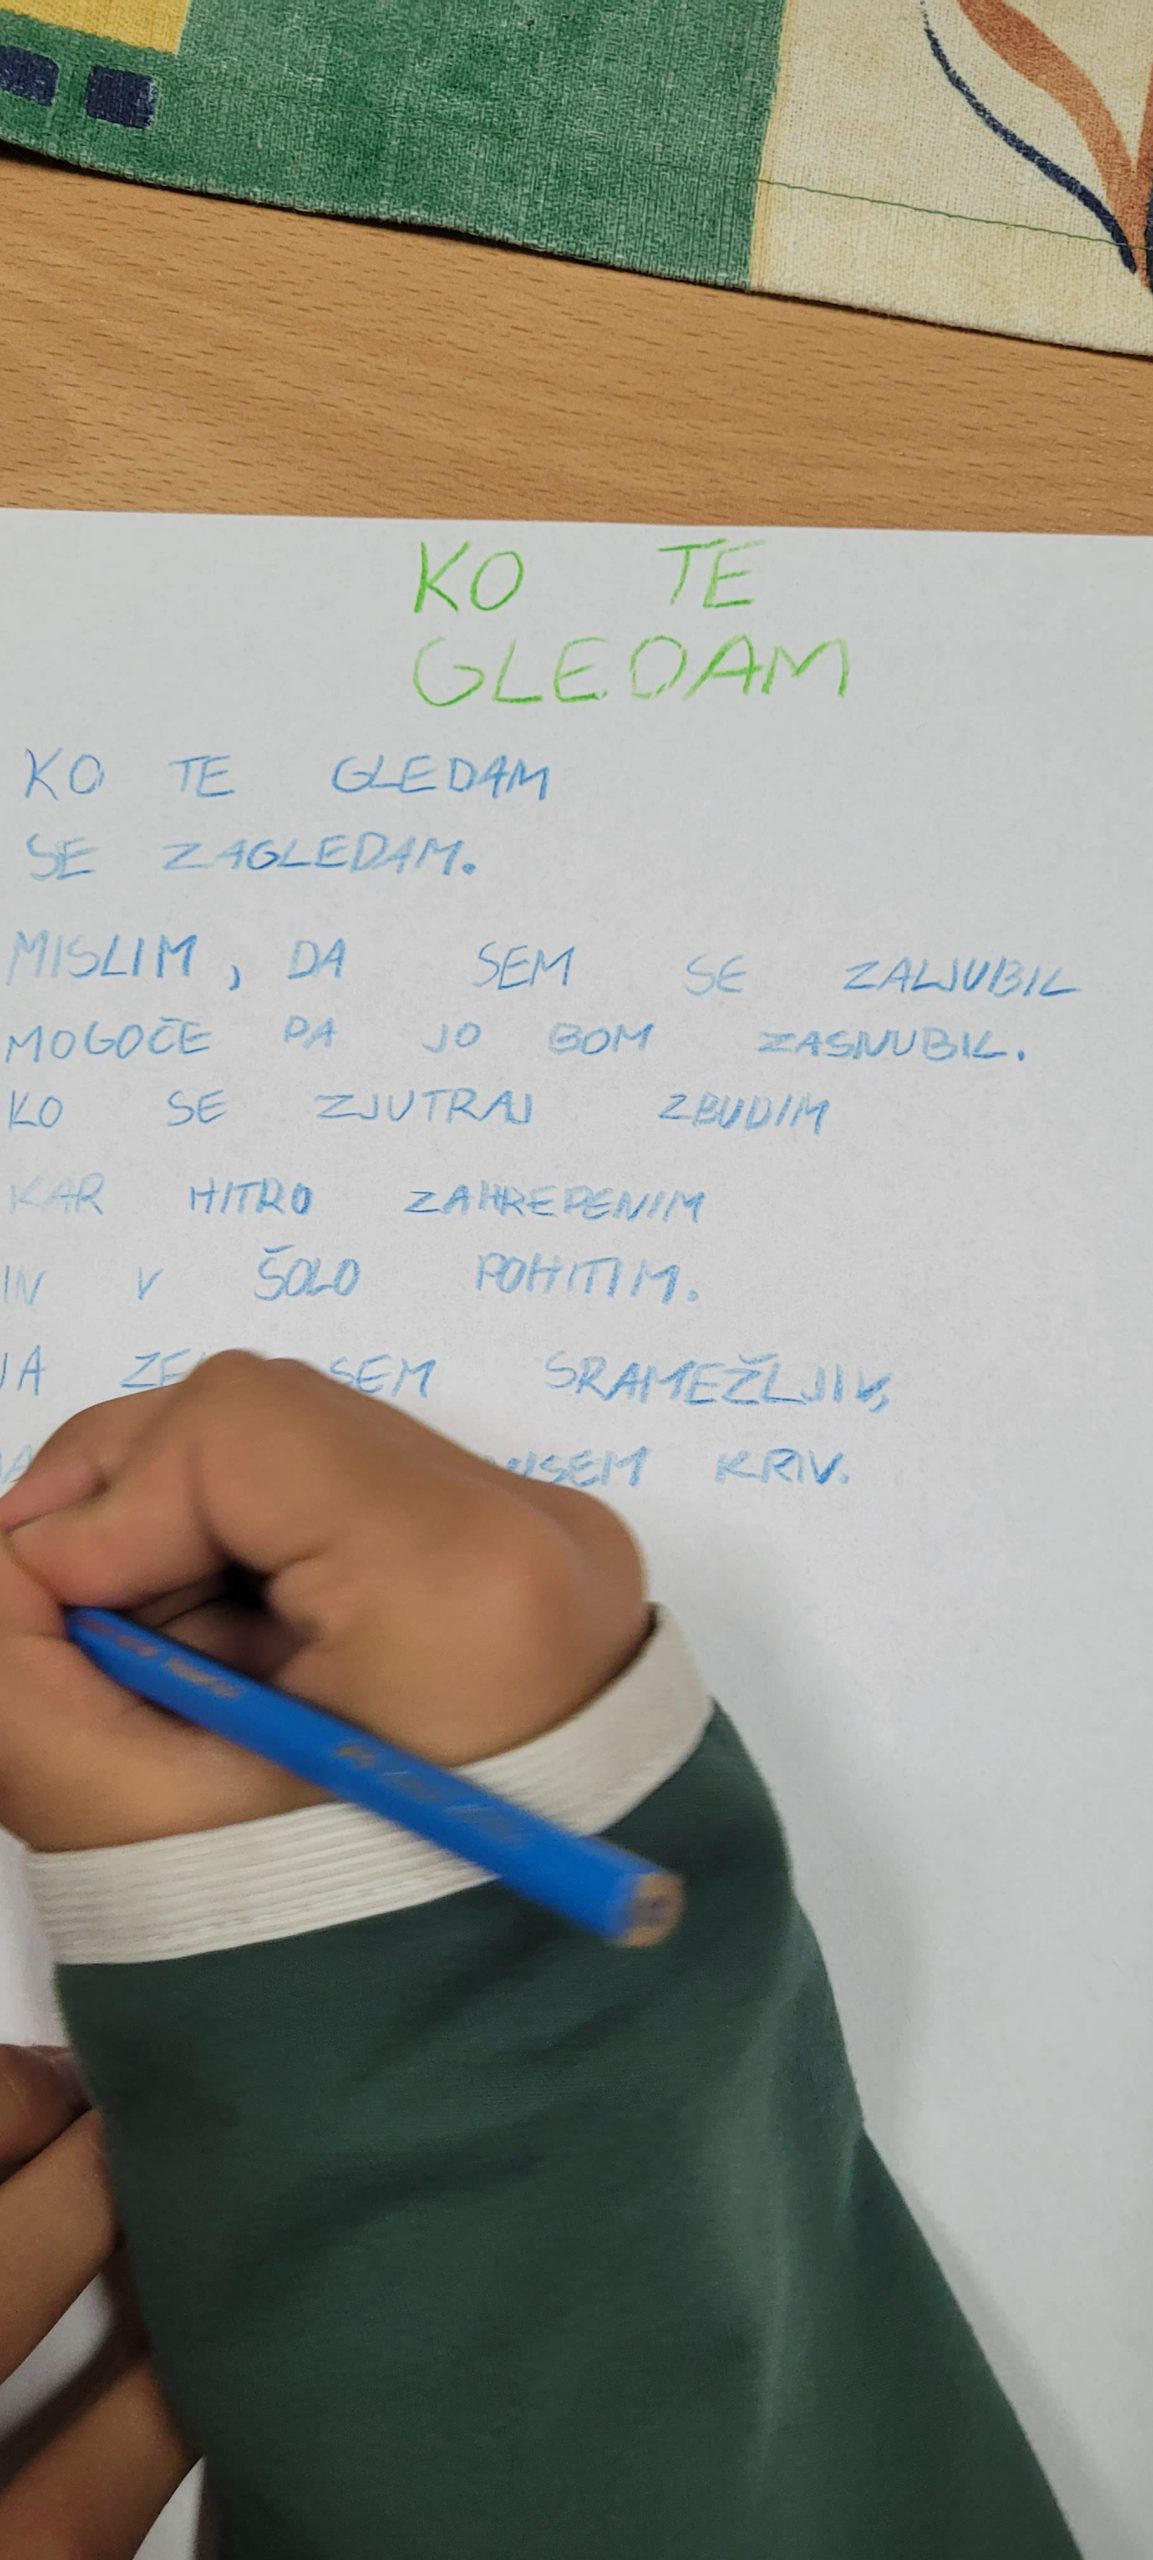 KO TE
GLEDAM
KO TE GLEDAM
SE ZAGLEDAM.
MISLIM, DA SEM SE ZALJUBIL
MOGOČE PA JO BOM ZASNUBIL.
KO SE ZJUTRAJ ZBUDIM
KAR HITRO ZAHREPENIM
IN V ŠOLO POHITIM.
JA SEM SRAMEŽLJIV,
NISEM KRIV.